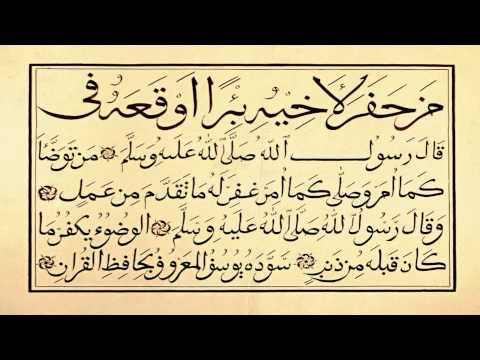 من حفر لأخيه بئرا اوقعه في
قال رسول الله صلى الله عليه وسلم من توضأ
كما امر وصلى كما امر غفر له ما تقدم من عمل
وقال رسول الله صلى الله عليه وسلم الوضوء يكفر ما
كان قبله من ذنب سوده يوسف المعروف بحافظ القرآن